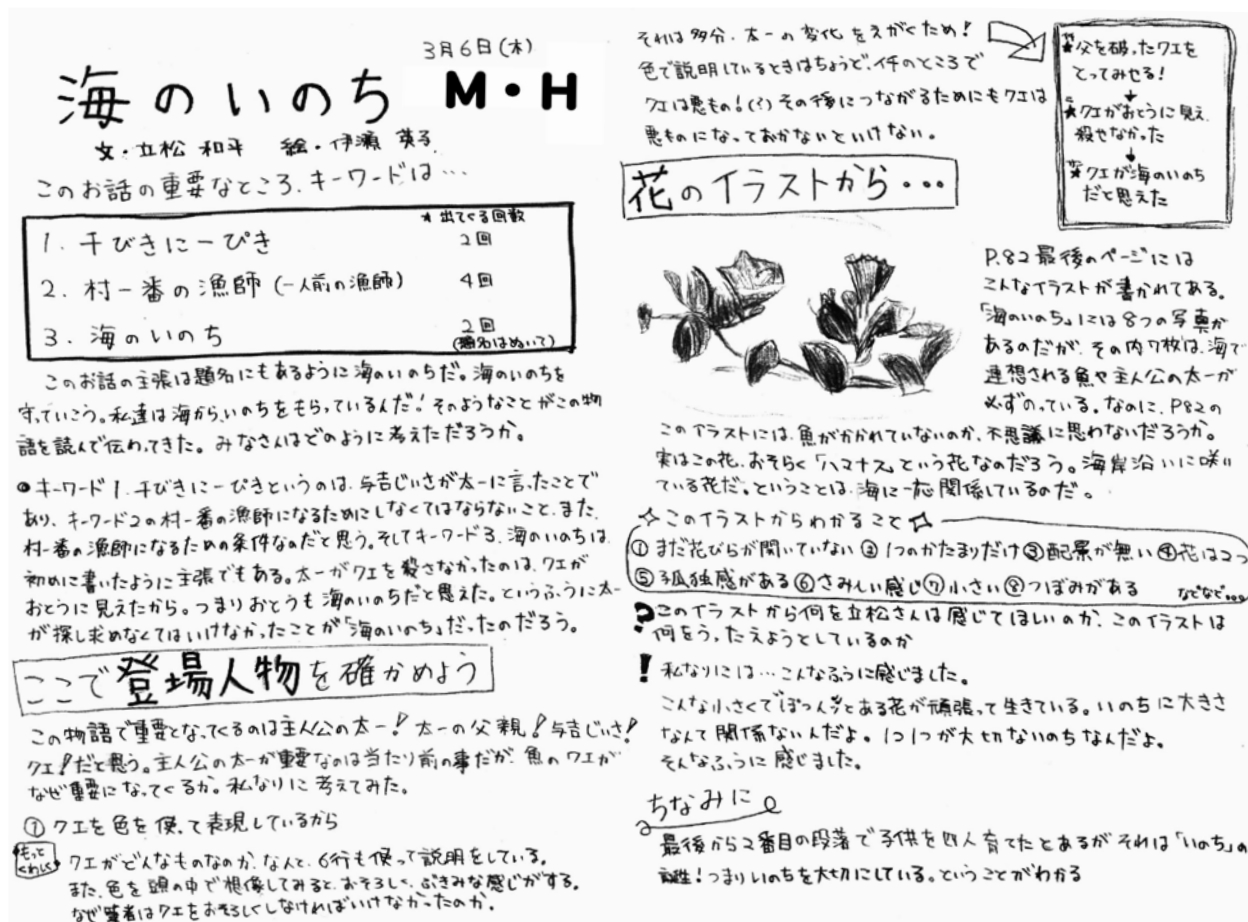 3月6日(木)
海のいのち M・H
文・立松 和平 絵・伊瀬 英子
このお話の重要なところ、キーワードは…
★出てくる回数
1. 千びきに一ぴき 2回
2. 村一番の漁師(一人前の漁師) 4回
3. 海のいのち 2回
(題名はぬいて)
このお話の主張は題名にもあるように海のいのちだ。海のいのちを
守っていこう。私達は海から、いのちをもらっているんだ!そのようなことがこの物
語を読んで伝わってきた。みなさんはどのように考えただろうか。
●キーワード1、千びきに一ぴきというのは、与吉じいさが太一に言ったことで
あり、キーワード2の村一番の漁師になるためにしなくてはならないこと、また、
村一番の漁師になるための条件なのだと思う。そしてキーワード3、海のいのちは、
初めに書いたように主張でもある。太一がクエを殺さなかったのは、クエが
おとうに見えたから。つまりおとうも海のいのちだと思えた。というふうに太一
が探し求めなくてはいけなかったことが「海のいのち」だったのだろう。
ここで登場人物を確かめよう
この物語で重要となってくるのは主人公の太一!太一の父親!与吉じいさ!
クエ!だと思う。主人公の太一が重要なのは当たり前の事だが、魚のクエが
なぜ重要になってくるか。私なりに考えてみた。
① クエを色を使って表現しているから
もっとくわしく
クエがどんなものなのか、なんと、6行も使って説明をしている。
また、色を頭の中で想像してみると、おそろしく、ぶきみな感じがする。
なぜ筆者はクエをおそろしくしなければいけなかったのか。
それは多分、太一の変化をえがくため!
色で説明しているときはちょうど、イチのところで
クエは悪もの!(?)その後につながるためにもクエは
悪ものになっておかないといけない。
★父を破ったクエを
とってみせる!
↓
★クエがおとうに見え、
殺せなかった
↓
★クエが海のいのち
だと思えた
花のイラストから・・・
P.82最後のページには
こんなイラストが書かれてある。
「海のいのち」には8つの写真が
あるのだが、その内7枚は、海で
連想される魚や主人公の太一が
必ずのっている。なのに、P82の
このイラストには、魚がかかれていないのか、不思議に思わないだろうか。
実はこの花、おそらく「ハマナス」という花なのだろう。海岸沿いに咲い
ている花だ。ということは、海に一応関係しているのだ。
☆このイラストからわかること☆
①まだ花びらが開いていない ②1つのかたまりだけ ③配景が無い ④花は2つ
⑤孤独感がある ⑥さみしい感じ ⑦小さい ⑧つぼみがある などなど…
?このイラストから何を立松さんは感じてほしいのか、このイラストは
何をうったえようとしているのか
!私なりには…こんなふうに感じました。
こんな小さくてぽつんとある花が頑張って生きている。いのちに大きさ
なんて関係ないんだよ。1つ1つが大切ないのちなんだよ。
そんなふうに感じました。
ちなみに
最後から2番目の段落で子供を四人育てたとあるがそれは「いのち」の
誕生!つまりいのちを大切にしている。ということがわかる